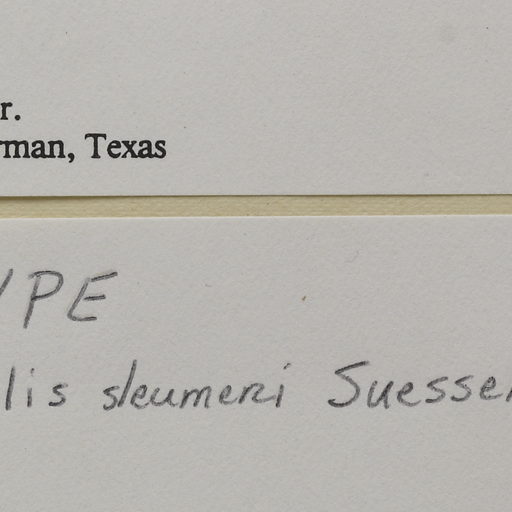 r.
rman, Texas
YPE
lis sleumeri Suessen